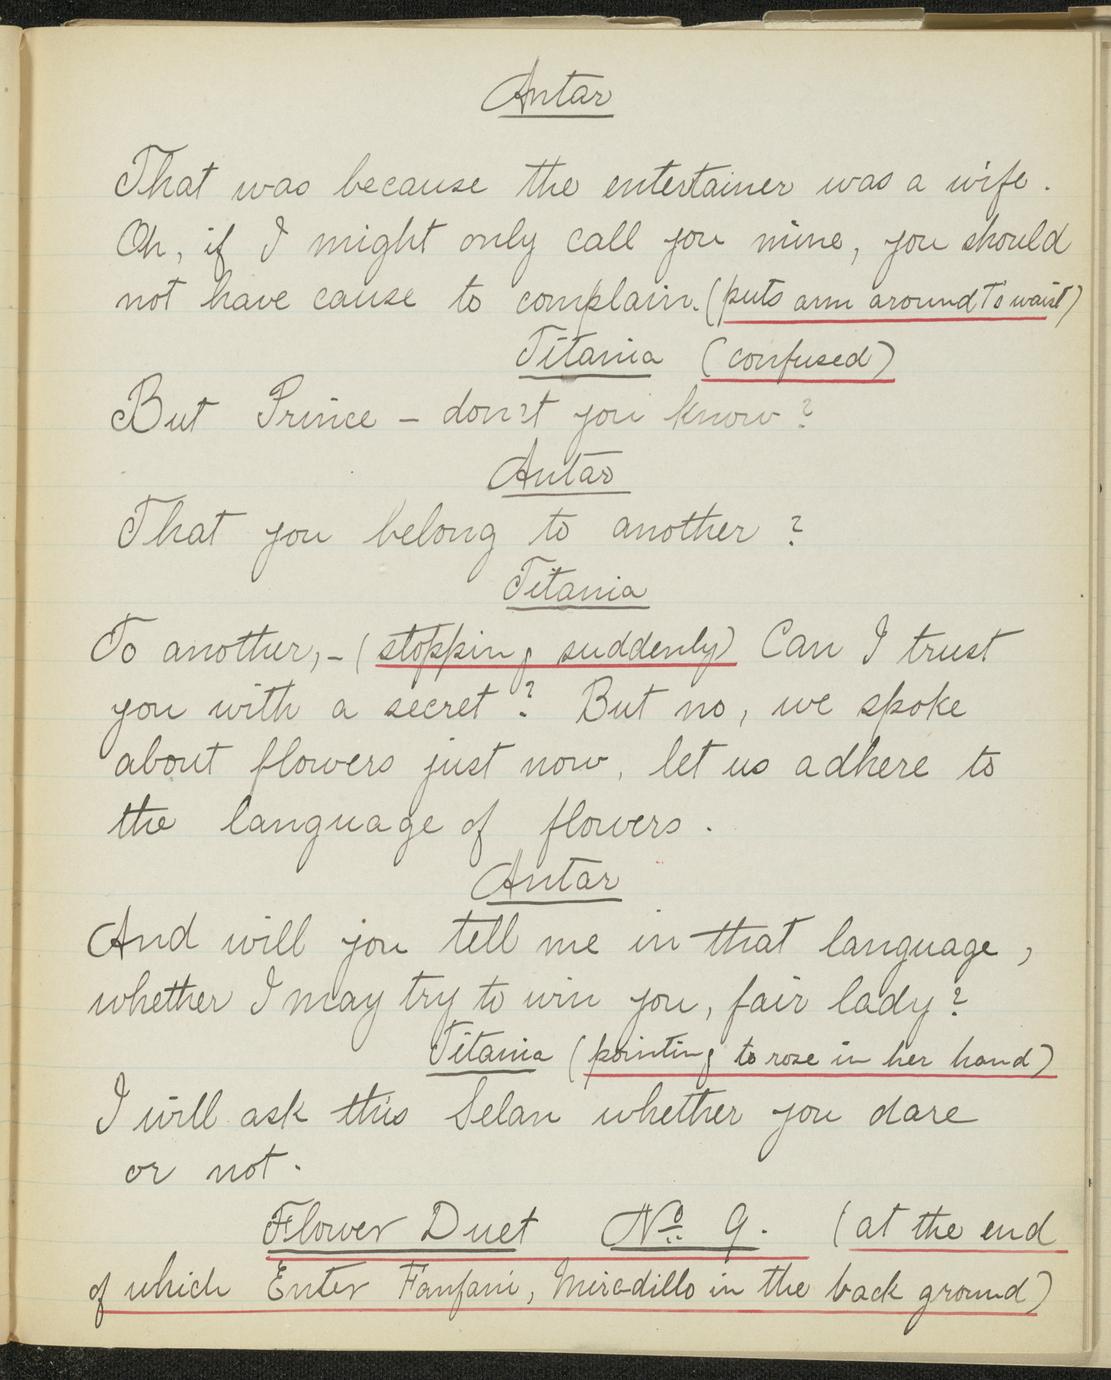 Antar
That was because the entertainer was a wife.
Oh, if I might only call you mine, you should
not have cause to complain. (puts arm around T's waist)
Titania (confused)
But Prince – don't you know?
Antar
That you belong to another?
Titania
To another, – (stopping suddenly) Can I trust
you with a secret? But no, we spoke
about flowers just now, let us adhere to
the language of flowers.
Antar
And will you tell me in that language,
whether I may try to win you, fair lady?
Titania (pointing to rose in her hand)
I will ask this Selan whether you dare
or not.
Flower Duet No 9. (at the end
of which Enter Fanfani, Miradillo in the back ground)